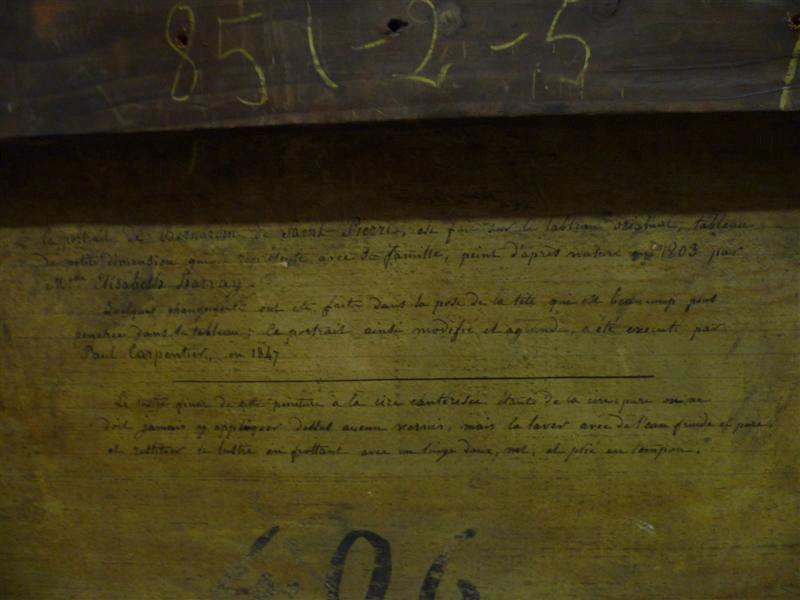 851-2-5
Le portrait de Bernardin de Saint-Pierre, est fait sur le tableau original, tableau
de petite dimension qui le représente avec sa famille, peint d'après nature en 1803 par
Elisabeth Harray.
Quelques changements ont été faits dans la pose de la tête qui est beaucoup plus
penchée dans le tableau; Ce portrait ainsi modifié et agrandi, a été exécuté par
Paul Carpentier, en 1847
Le lustre de cette peinture à la cire cautérisée étant de la cire pure on ne
doit jamais y appliquer dessus aucun vernis, mais la laver avec de l'eau froide et pure,
et restituer le lustre en frottant avec un linge doux, net, et plié en tampon.
406